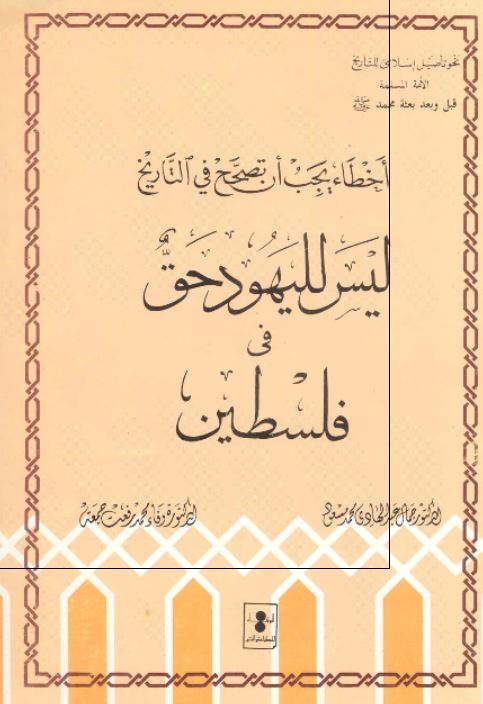 نحو تأصيل إسلامي للتاريخ
الأمة المسلمة
قبل وبعد بعثة محمد ﷺ
أخطاء يجب أن تصحح في التاريخ
ليس لليهود حق
في
فلسطين
الدكتور جمال عبد الهادي محمد مسعود
الدكتورة وفاء محمد رفعت جمعة